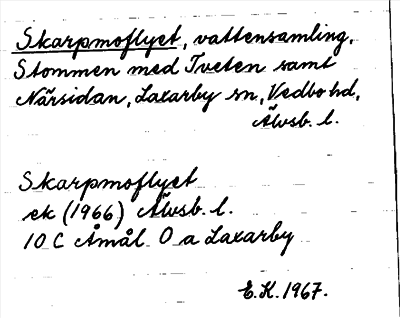 Skarpmoflyet, vattensamling,
Stommen med Tveten samt
Närsidan, Laxarby sn, Vedbo hd,
Älvsb. l.
Skarpmoflyet
ek (1966) Älvsb. l.
10 C Åmål O a Laxarby
E.K. 1967.